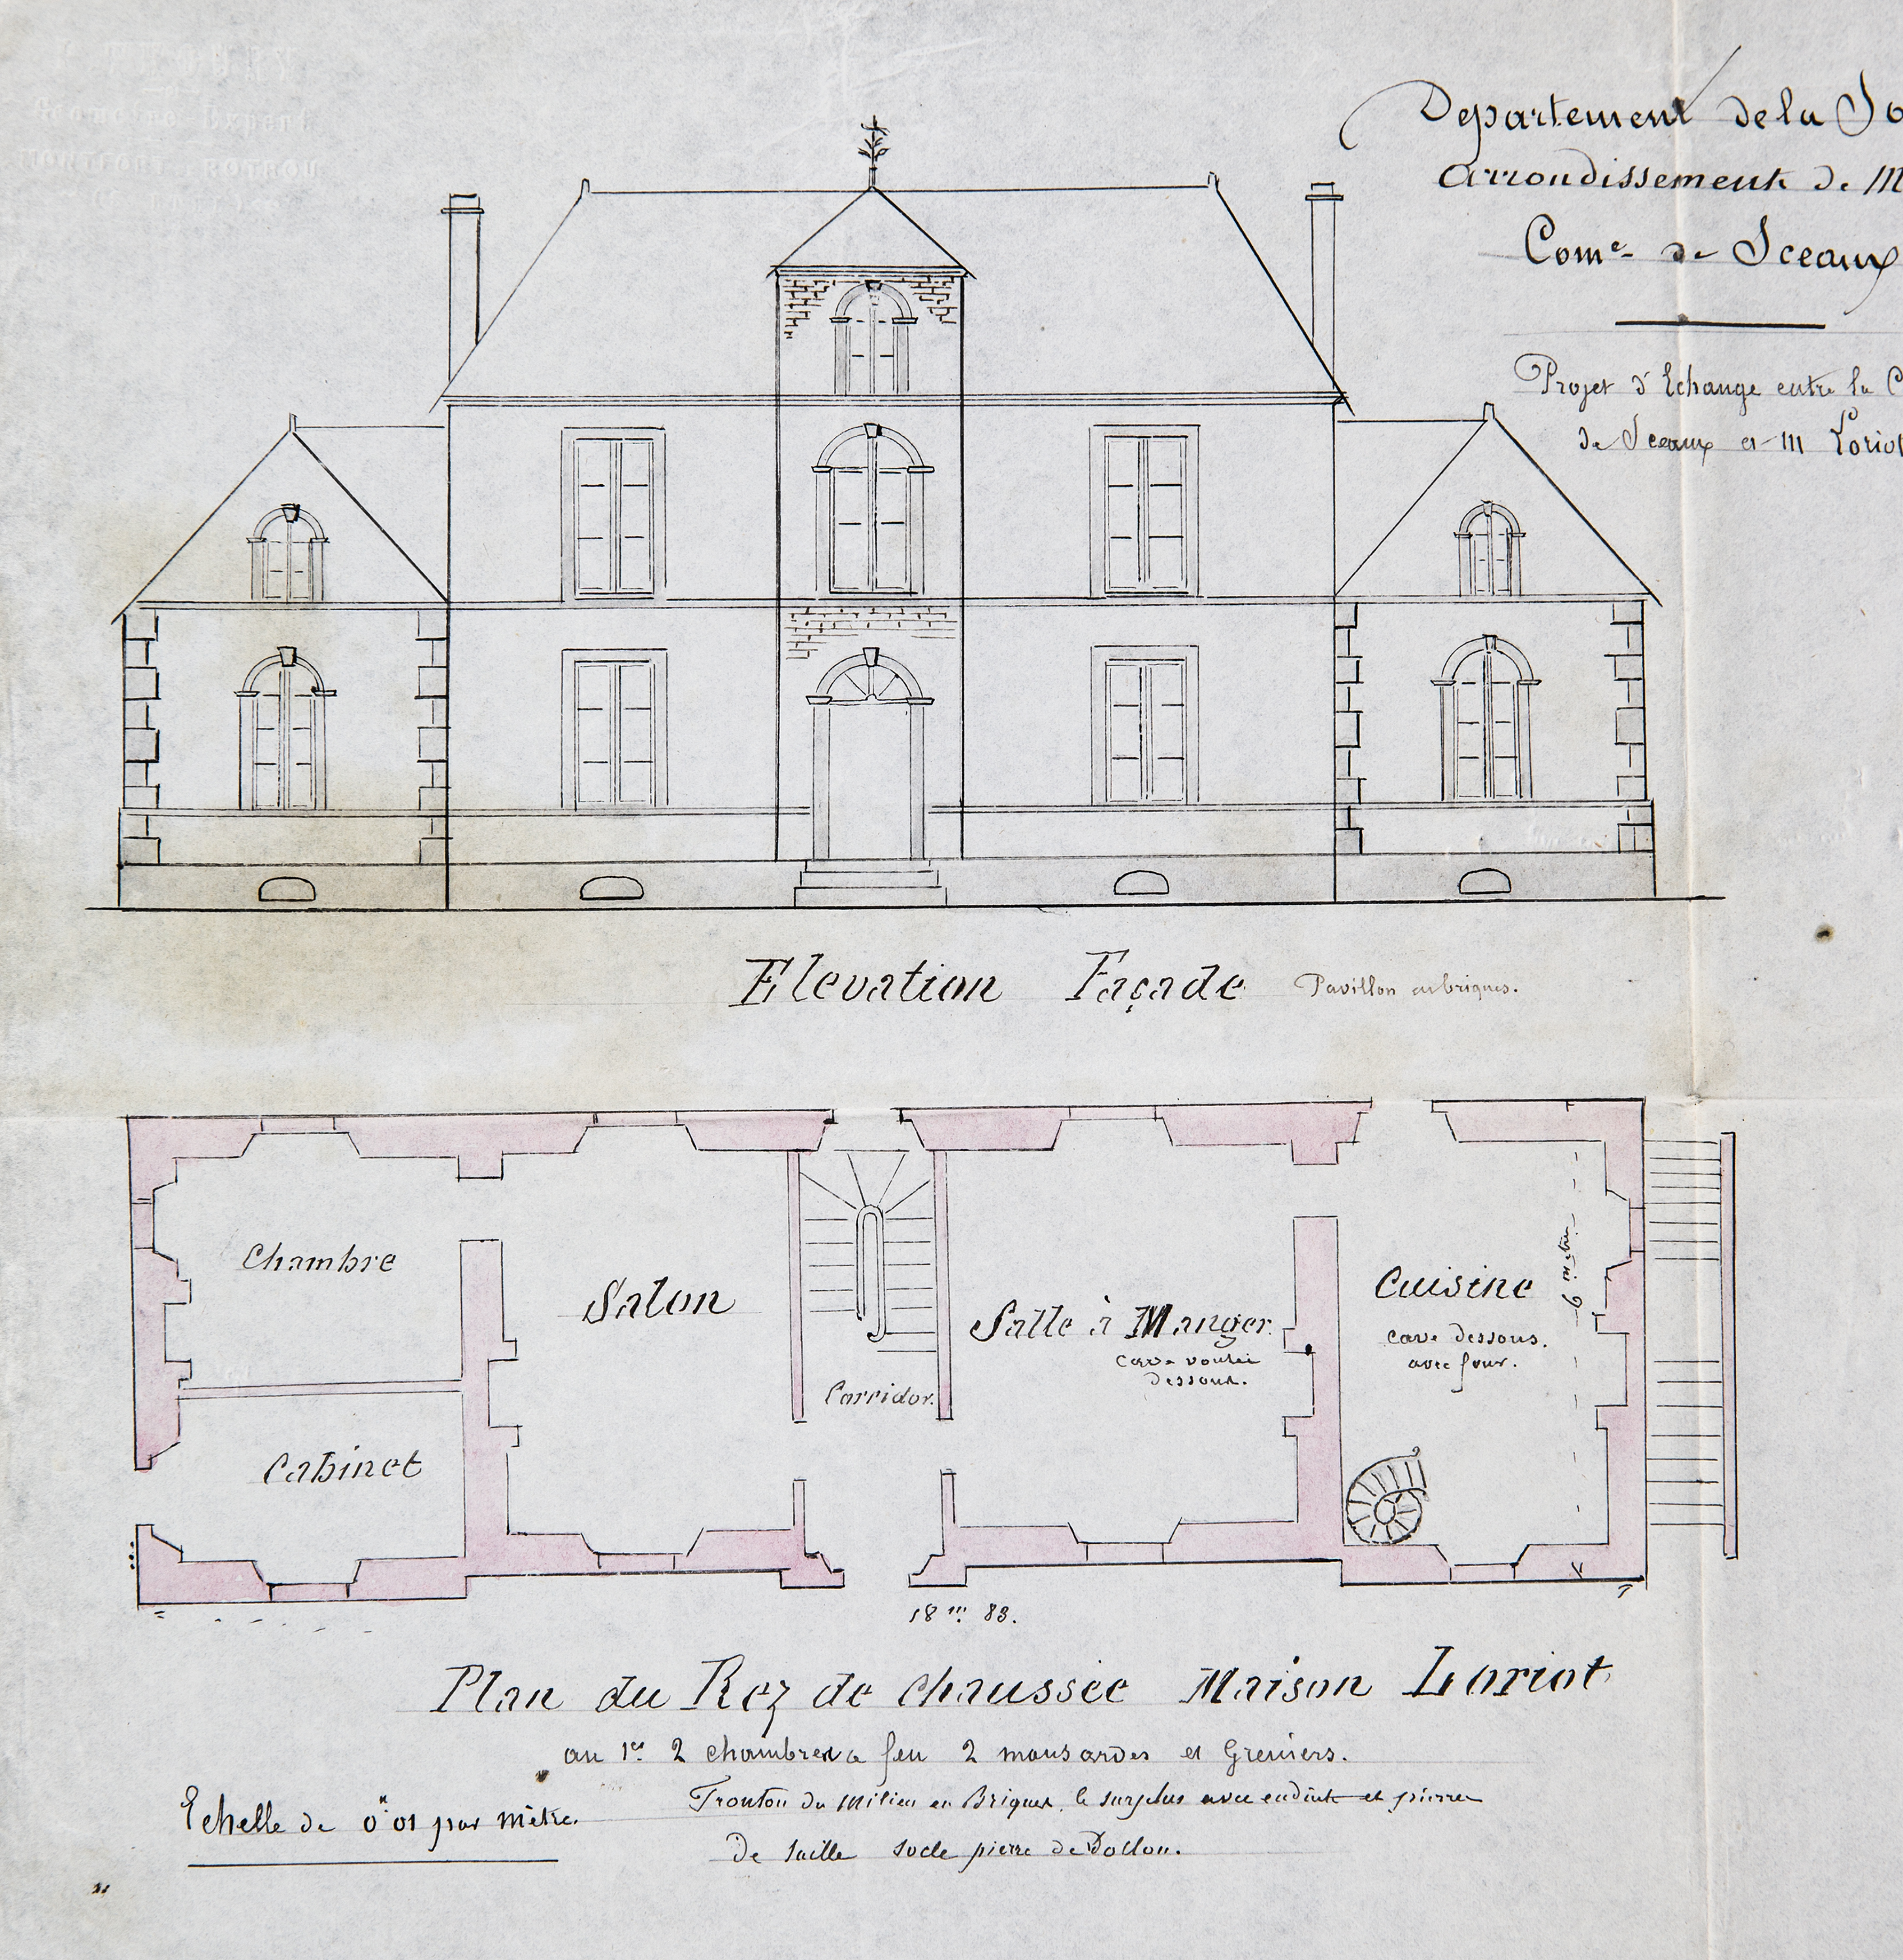 Géomètre Expert
MONTFORT ROTROU
Departement de la So
Arrondissement de M
Com.e de Sceaux
Projet d'Echange entre la C
de Sceaux et M Loriot
Elevation Façade
Pavillon en briques.
Chambre
Salon
Cuisine
6 mètres
Salle à Manger
cave dessous.
avec four.
cave voutée
dessous.
Corridor.
Cabinet
18 m 83.
Plan du Rez de chaussée Maison Loriot
au 1er 2 chambres a feu 2 mansardes et Greniers.
Fronton du Milieu en Briques, le surplus avec enduit et pierre
De taille socle pierre de Dollon.
Echelle de 0m01 par Mètre.